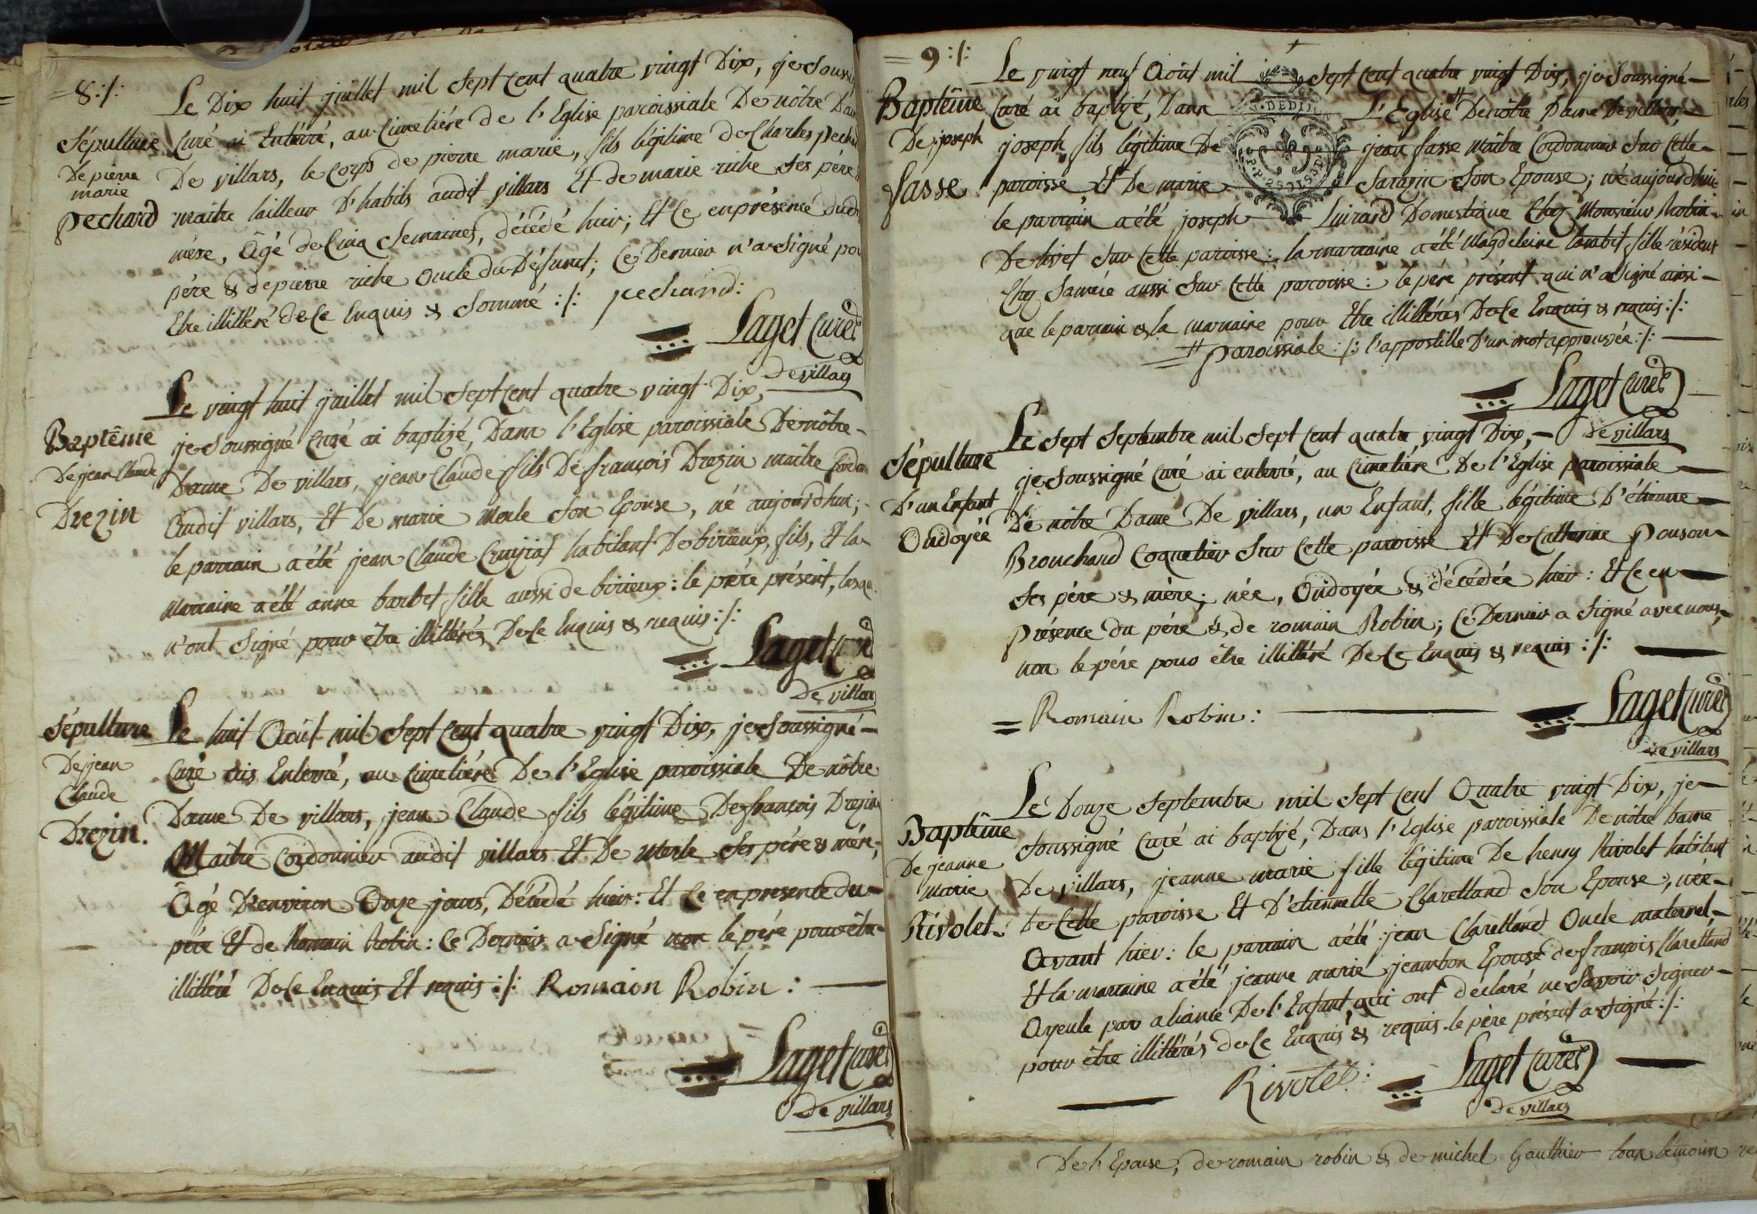 8:/:
Le Dix huit juillet mil sept cent quatre vingt Dix, je Soussi
Sépulture Curé ai Enterré, au Cimetiére de l'Eglise paroissiale De nôtre Dam
De pierre marie pechard
De villars, le Corps de pierre marie, fils légitime de Charles pech
maitre tailleur D'habits audit villars Et de marie riche Ses pere
mére, Âgé de Cinq Semaines, décédé hier; Et Ce en présence dud
pére & de pierre riche oncle du Défunct; Ce Dernier n'a Signé po
Etre illittéré de Ce Enquis & Sommé :/: pechard:
Laget Curé
De villars
Le vingt huit juillet mil Sept Cent quatre vingt Dix,
Baptême
De jean Claude
Drezin
je Soussigné Curé ai baptizé, Dans l'Eglise paroissiale De nôtre
Dame De villars, jean Claude fils De françois Drezin maitre Cordon
Audit villars, Et De marie Merle Son Epouse, né aujourd'hui;
le parrain a été jean Claude habitant De birieux, fils, Et la
Marraine a été anne barbet fille aussi de birieux: le pére présent,
n'ont Signé pour être illittérés De Ce Enquis & requis :/:
Laget Curé
De villars
Sépulture
De jean
Claude
Drezin.
Le huit Août mil Sept Cent quatre vingt Dix, je Soussigné
Curé ais Enterré, au Cimetiére De l'Eglise paroissiale De nôtre
Dame De villars, jean Claude fils légitime De françois Drezin
Maître Cordonnier audit villars Et De Merle Ses pére & mére,
Âgé D'environ Onze jours, Décédé hier: Et Ce en présence du
pére Et de Romain Robin: Ce Dernier a Signé non le pére pour être
illittéré De Ce Enquis Et requis :/: Romain Robin:
Laget Curé
De villars
9:/:
Le vingt neuf Août mil Sept Cent quatre vingt Dix, je Soussigné
Baptême
De joseph
fasse
Curé ai baptizé, Dans L'Eglise De nôtre Dame De villars,
joseph fils légitime De jean fasse Maître Cordonnier Sur Cette
paroisse Et De marie Sarazin Son Epouse; né aujourd'hui
le parrain a été joseph Luirard Domestique Chez Monsieur Robin
De livet Sur Cette paroisse: la marraine a été Magdeleine fille résident
Chez Saméié aussi Sur Cette paroisse: le pére présent qui n'a Signé ainsi
que le parrain & la marraine pour Etre illittérés De Ce Enquis & requis :/:
paroissiale :/: l'appostille D'un mot approuvée :/:
Laget Curé
De villars
Le Sept Septembre mil Sept Cent quatre vingt Dix,
Sépulture
D'un Enfant
Ondoyée
je Soussigné Curé ai enterré, au Cimetiére De l'Eglise paroissiale
De nôtre Dame De villars, un Enfant, fille légitime D'étienne
Brouchand Coquetier Sur Cette paroisse Et De Catherine Ponson
Ses pére & mére; née, Ondoyée & décédée hier: Et Ce en
présence du pére & de romain Robin; Ce Dernier a Signé avec nous,
non le pére pour être illittéré De Ce Enquis & requis :/:
Romain Robin:
Laget Curé
De villars
Le Douze Septembre mil Sept Cent Quatre vingt Dix, je
Baptême
De jeanne
marie
Rivolet.
Soussigné Curé ai baptizé, Dans l'Eglise paroissiale De nôtre Dame
De villars, jeanne marie fille légitime De henry Rivolet habitant
De Cette paroisse Et D'étiennette Claretland Son Epouse, née
Avant hier: le parrain a été jean Claretland Oncle maternel
Et la marraine a été jeanne marie jeambon Epouse de françois Claretland
Ayeule par aliance De l'Enfant, qui ont déclaré ne Savoir Signer
pour être illittérés de Ce Enquis & requis. le pére présent a Signé :/:
Rivolet:
Laget Curé
De villars
De l'Epouse, de romain robin & de michel Gauthier